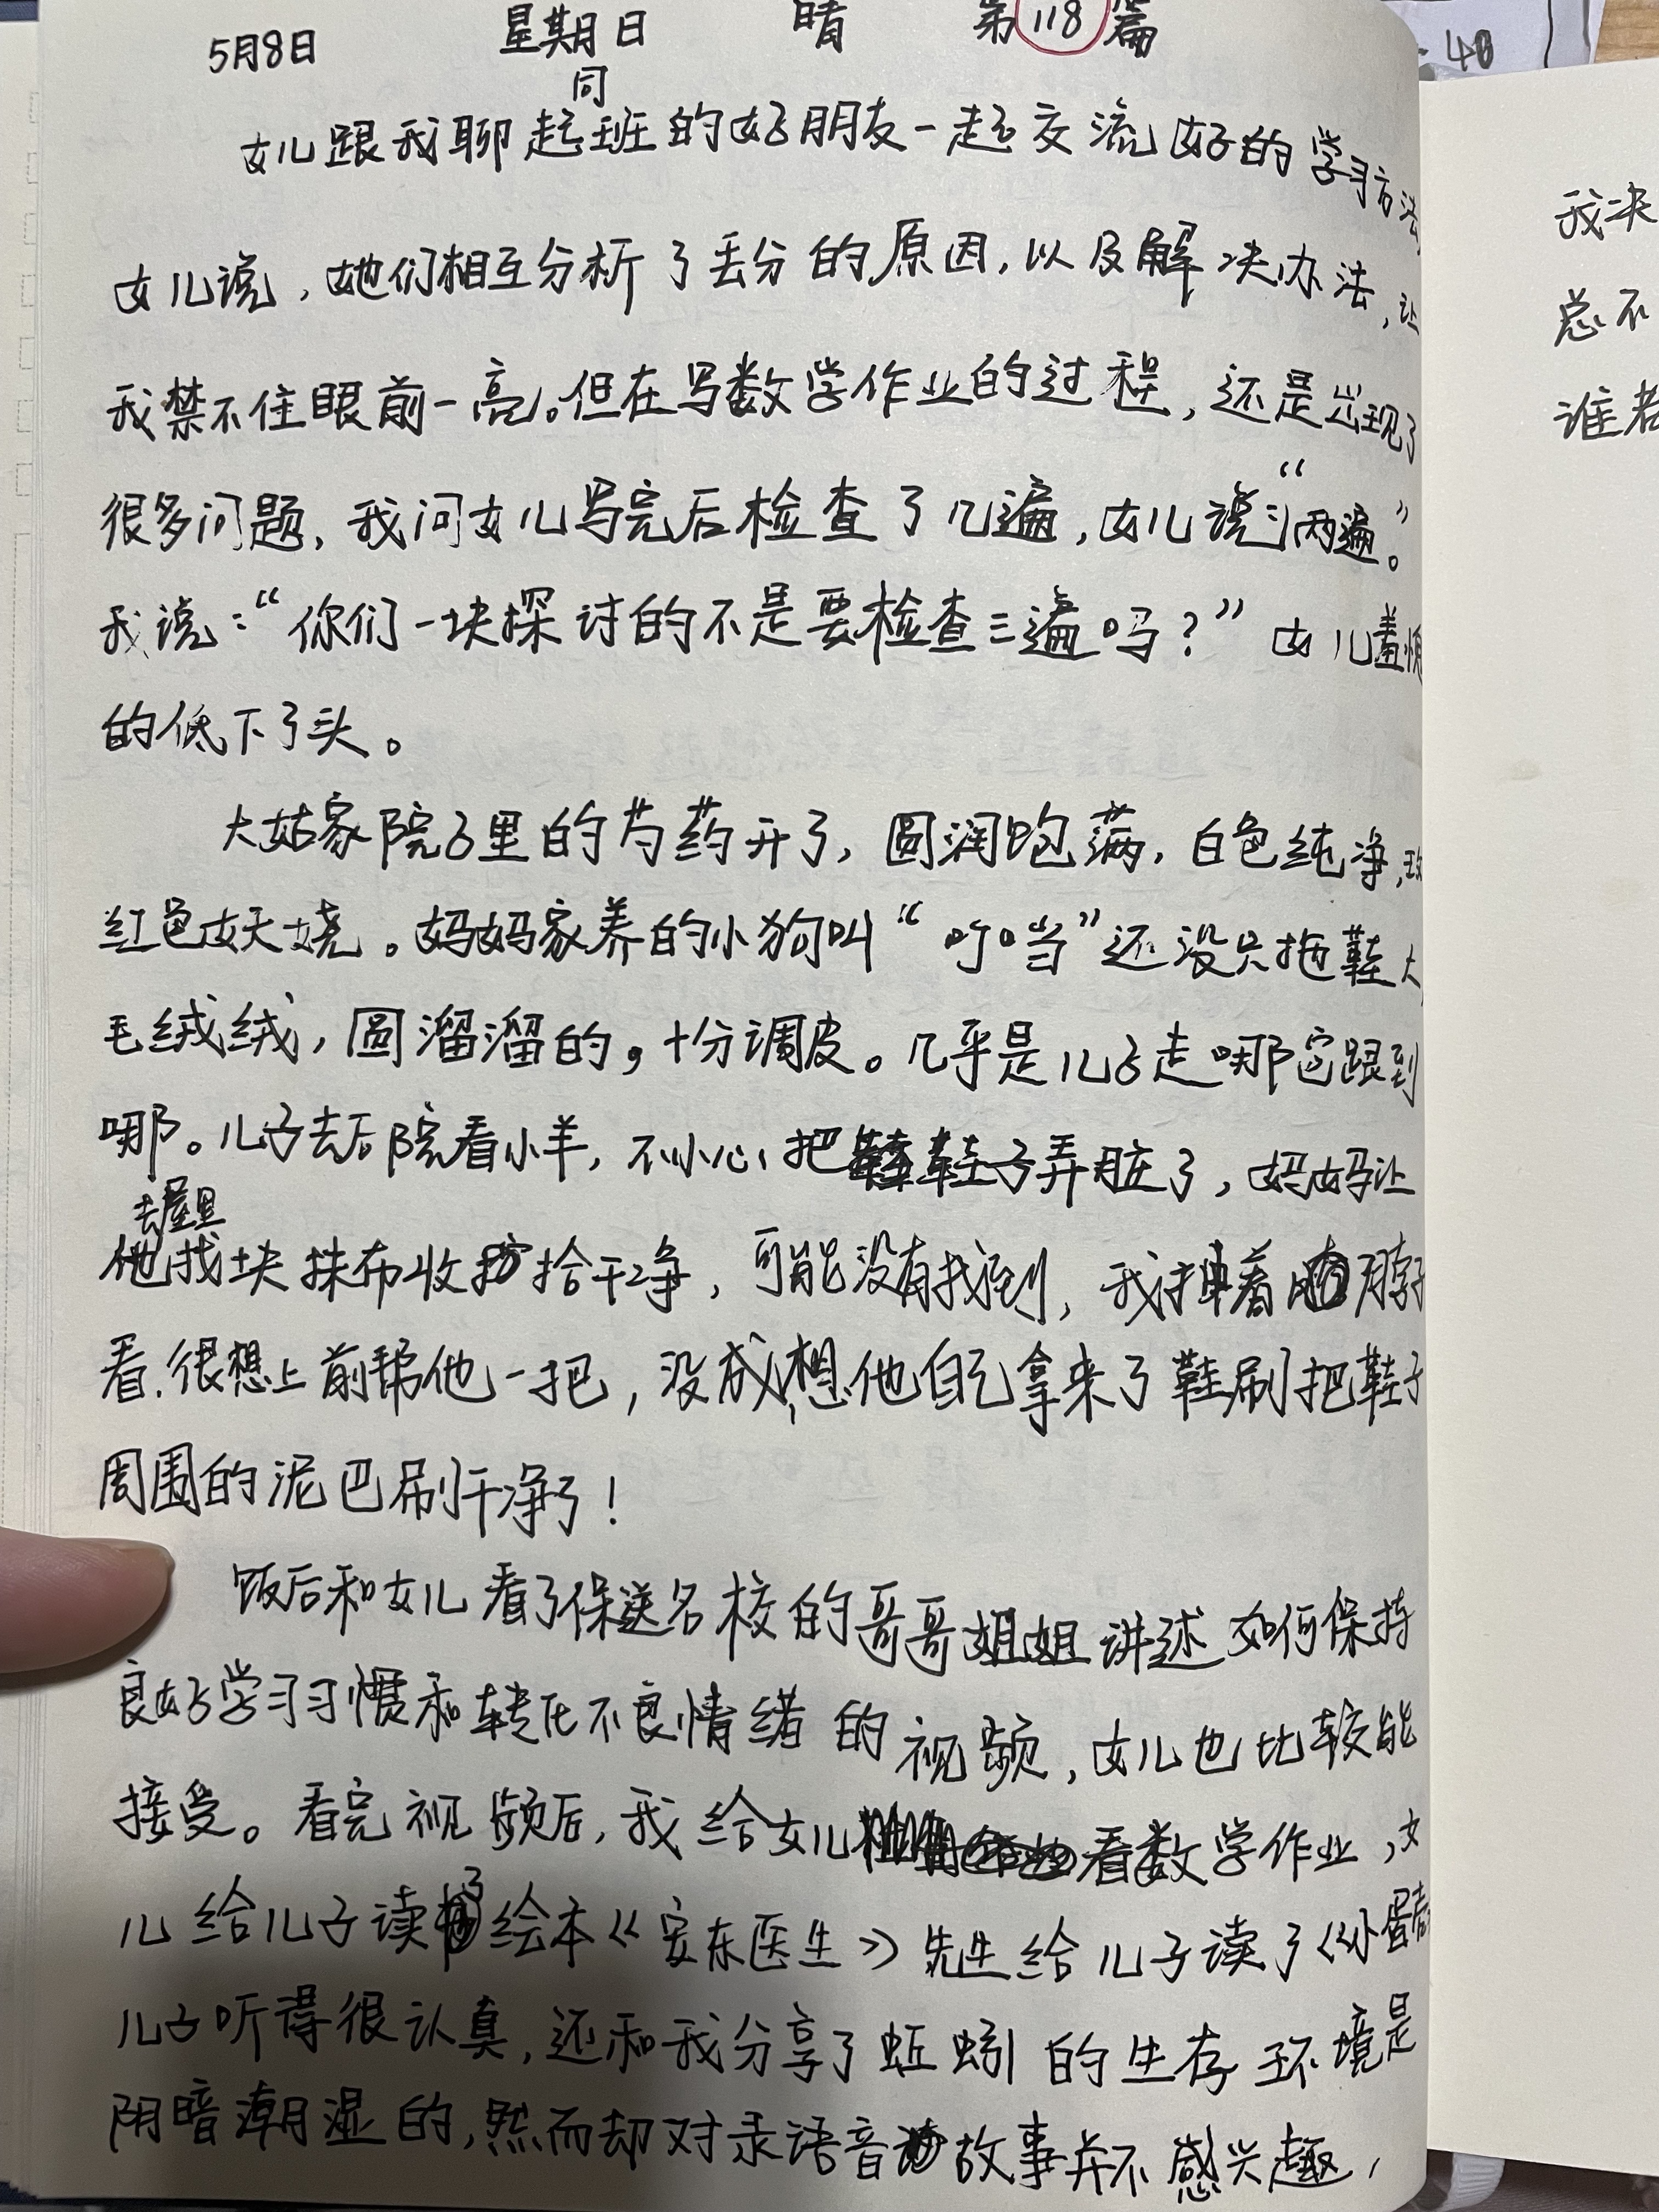 5月8日 星期日 晴 第118篇
40
女儿跟我聊起同班的好朋友一起交流好的学习方法
女儿说，她们相互分析了丢分的原因，以及解决办法，让
我禁不住眼前一亮。但在写数学作业的过程，还是出现了
很多问题，我问女儿写完后检查了几遍，女儿说：“两遍。”
我说：“你们一块探讨的不是要检查三遍吗？”女儿羞愧
的低下了头。
大姑家院子里的芍药开了，圆润饱满，白色纯净，玫
红色妖娆。妈妈家养的小狗叫“叮当”还没只拖鞋大
毛绒绒，圆溜溜的，十分调皮。几乎是儿子走哪它跟到
哪。儿子去后院看小羊，不小心把鞋子弄脏了，妈妈让
他去屋里找块抹布收拾干净，可能没有找到，我抻着脖子
看，很想上前帮他一把，没成想他自己拿来了鞋刷把鞋子
周围的泥巴刷干净了！
饭后和女儿看了保送名校的哥哥姐姐讲述如何保持
良好学习习惯和转化不良情绪的视频，女儿也比较能
接受。看完视频后，我给女儿看数学作业，女
儿给儿子读了绘本《安东医生》先生给儿子读了《小蛋壳
儿子听得很认真，还和我分享了蚯蚓的生存环境是
阴暗潮湿的，然而却对录语音故事并不感兴趣，
我决
总不
谁若